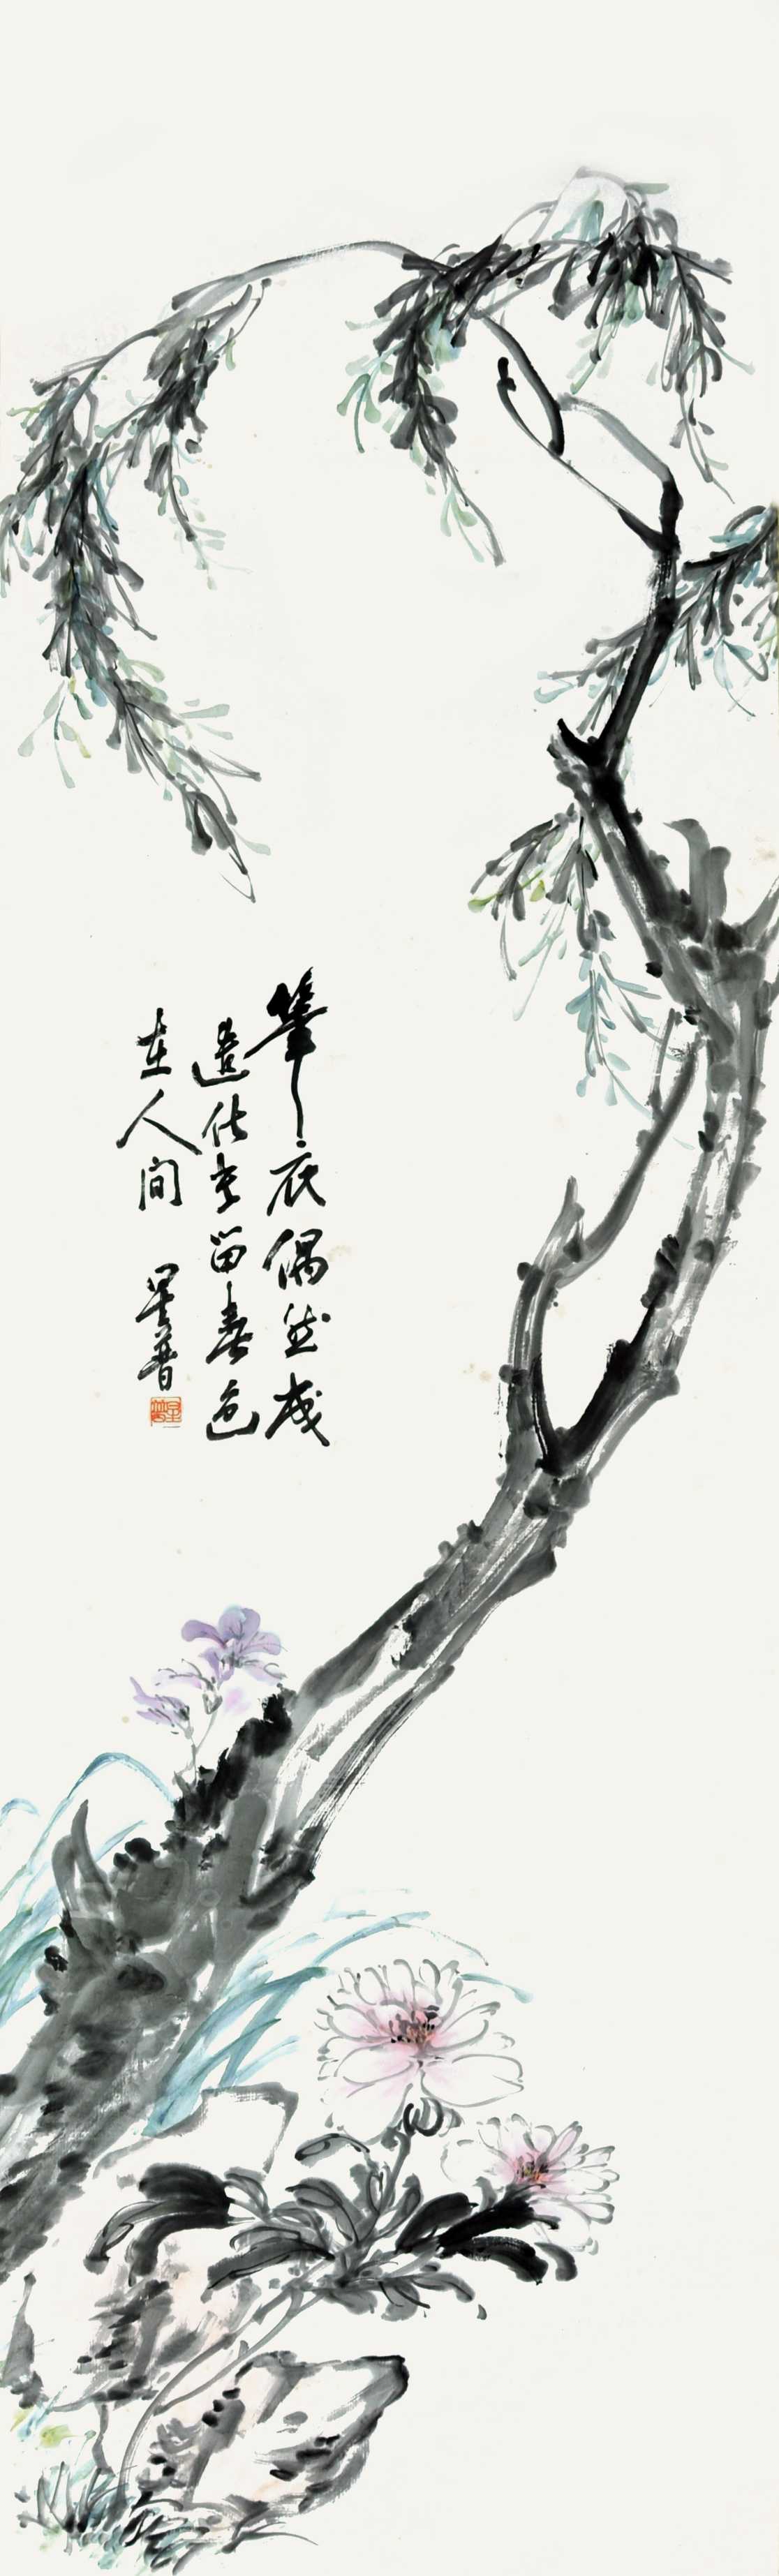 筆底偶然成
造化長留春色
在人間 星普